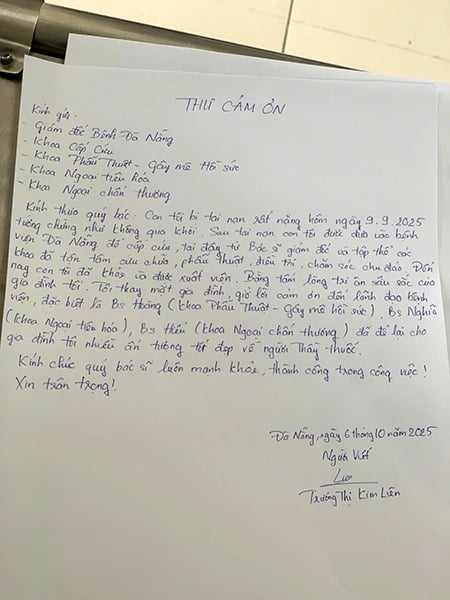 THƯ CẢM ƠN
Kính gửi:
- Giám đốc Bệnh Đà Nẵng
- Khoa Cấp Cứu
- Khoa Phẫu Thuật - Gây mê Hồi sức
- Khoa Ngoại tiêu hóa
- Khoa Ngoại chấn thương
Kính thưa quý bác: Con tôi bị tai nạn rất nặng hôm ngày 9.9.2025
tưởng chừng như không qua khỏi. Sau tai nạn con tôi được đưa vào bệnh
viện Đà Nẵng để cấp cứu, tại đây từ Bác sĩ giám đốc và tập thể các
khoa đã tận tâm cứu chữa, phẫu thuật, điều trị, chăm sóc chu đáo. Đến
nay con tôi đã khỏe và được xuất viện. Bằng tấm lòng tri ân sâu sắc của
gia đình tôi. Tôi thay mặt gia đình, gửi lời cảm ơn đến lãnh đạo bệnh
viện, đặc biệt là Bs Hoàng (Khoa Phẫu Thuật - Gây mê hồi sức), Bs Nghĩa
(Khoa Ngoại tiêu hóa), Bs Hiếu (khoa Ngoại chấn thương) đã để lại cho
gia đình tôi nhiều ấn tượng tốt đẹp về người Thầy thuốc.
Kính chúc quý bác sĩ luôn mạnh khỏe, thành công trong công việc!
Xin trân trọng!
Đà Nẵng, ngày 6 tháng 10 năm 2025
Người Viết
Liên
Trương Thị Kim Liên